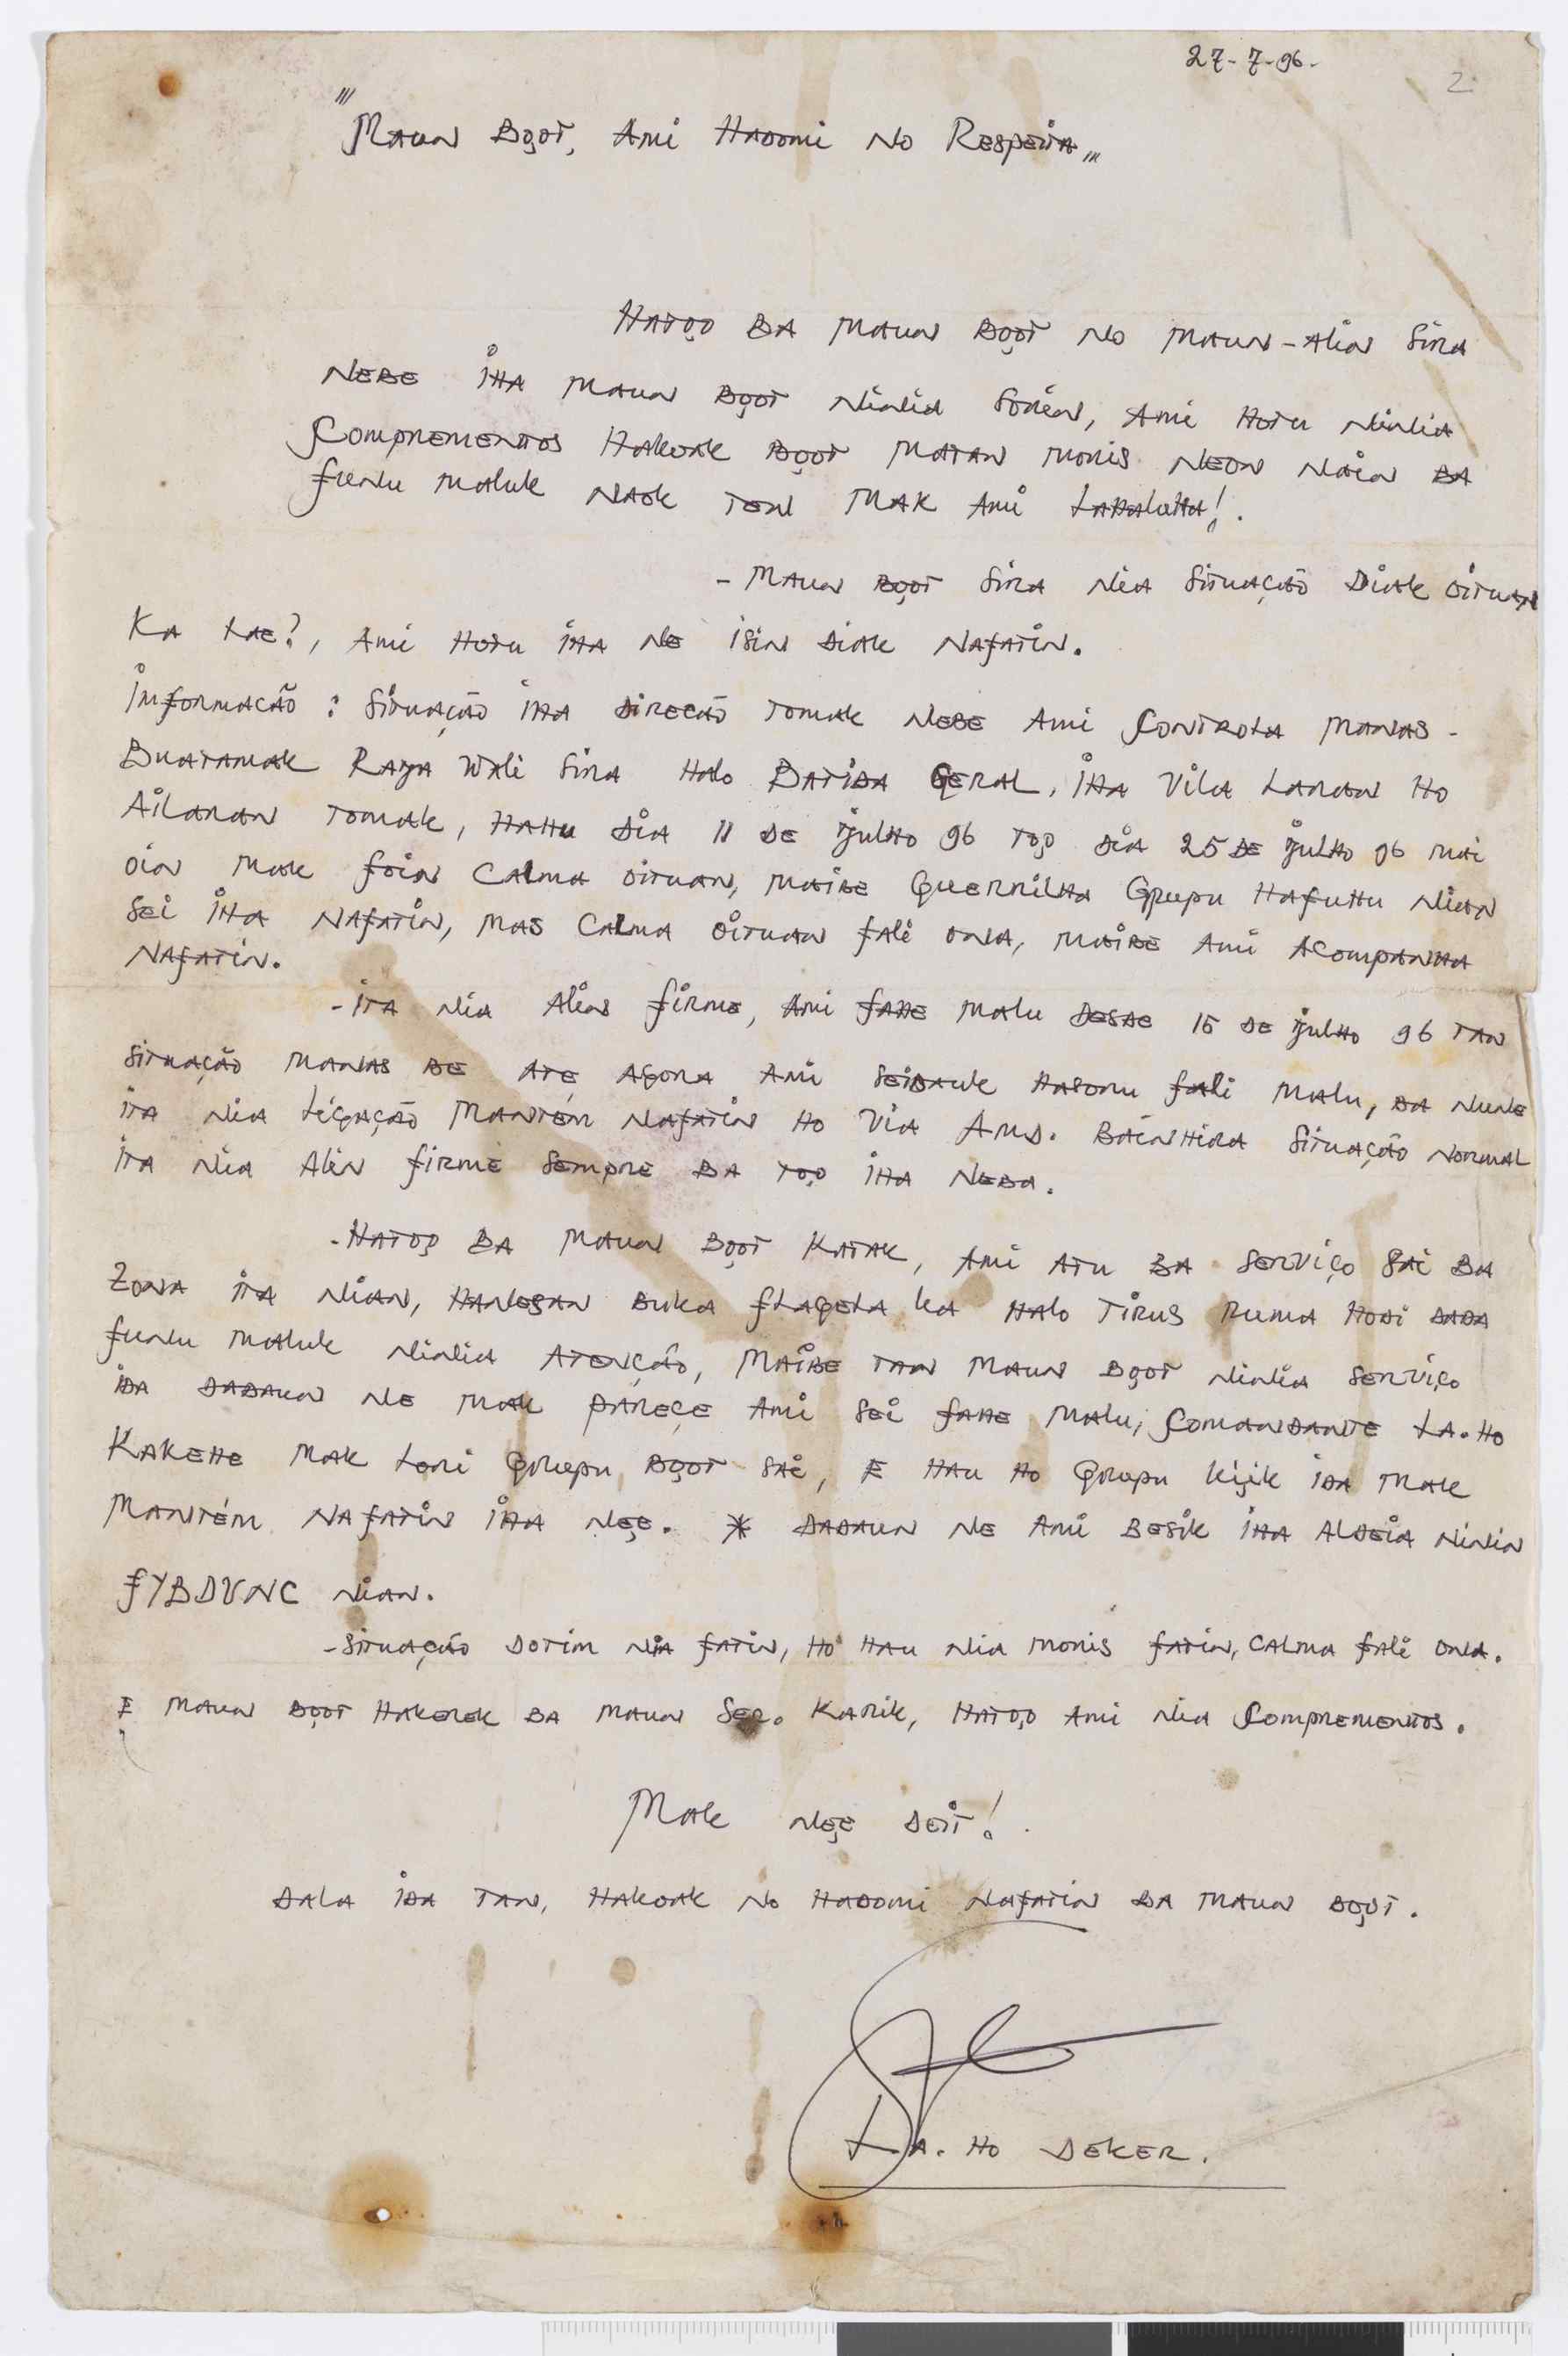 27-7-96.
2
"Maun Boot, Ami Hadomi no Respeita"
Hatoo ba Maun Boot no Maun-Alin sira
nebe iha Maun Boot ninia sorin, Ami hotu ninia
Comprementos Hakoak Boot Matan monis neon nain ba
funu maluk naok ten mak Ami Lahaluha!.
- Maun Boot sira nia situação diak oituan
Ka Lae?, Ami hotu iha ne isin diak nafatin.
Informacão : Situação iha direcão tomak nebe Ami Controla manas-
Buatamak Raya Wali sira halo Batida Geral, iha Vila Laran ho
Ailaran tomak, hahu dia 11 de julho 96 too dia 25 de julho 96 mai
oin mak foin calma oituan, maibe Guerrilha Grupu Hafuhu nian
sei iha nafatin, mas calma oituan fali ona, maibe Ami acompanha
nafatin.
- Ita nia Alin firme, Ami fahe malu desde 15 de julho 96 tan
situação manas be até agora Ami seidauk hasoru fali malu, ba nune
ita nia Ligação mantém nafatin ho via Ams. Bainhira situação normal
ita nia Alin firme sempre ba too iha neba.
- Hatoo ba Maun Boot Katak, Ami atu ba serviço sai ba
Zona ita nian, hanesan buka flagela ka halo tirus ruma hodi dada
funu maluk ninia atenção, maibe tan Maun Boot ninia serviço
ida dadaun ne mak pareçe Ami sei fahe malu, Comandante La. ho
Kakehe mak Lori Grupu Boot sai, e hau ho Grupu kiik ida mak
mantém nafatin iha nee. * dadaun ne Ami besik iha Aldeia ninin
FYBDVNC nian.
- Situação dotim nia fatin, ho hau nia monis fatin, calma fali ona.
E Maun Boot Hakerek ba Maun Ser. Karik, Hatoo Ami nia Comprementos.
Mak nee deit!.
Dala ida tan, Hakoak no Hadomi nafatin ba Maun Boot.
La. ho Deker.